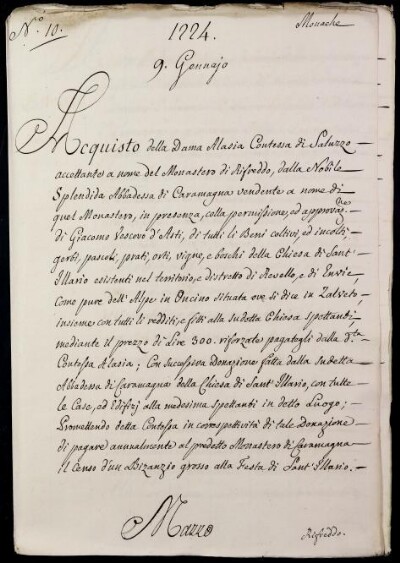 N.º 10.
1224.
Monache
9. Gennajo
Acquisto della Dama Alasia Contessa di Saluzzo
accettante a nome del Monastero di Rifreddo, dalla Nobile
Splendida Abbadessa di Caramagna vendente a nome di
quel Monastero, in presenza, colla permissione, ed approvaz.ne
di Giacomo Vescovo d'Asti, di tutti li Beni coltivi, ed incolti,
gerbi, pascoli, prati, orti, vigne, e boschi della Chiesa di Sant'
Illario esistenti nel territorio, e distretto di Revello, e di Envie,
come pure dell'Alpe in Oncino situata ove si dice in Valveto,
insieme con tutti li redditi, e fitti alla sudetta Chiesa spettandi,
mediante il prezzo di Lire 300. rinforzate pagategli dalla d.ta
Contessa Alasia; Con successiva Donazione fatta dalla sudetta
Abadessa di Caramagna della Chiesa di Sant'Illario, con tutte
le Case, ed Edifizj alla medesima spettanti in detto Luogo;
Promettendo detta Contessa in corrispettività di tale Donazione
di pagare annualmente al predetto Monastero di Caramagna
il Censo d'un Bizanzio grosso alla Festa di Sant'Illario.
Mazzo
Rifreddo.